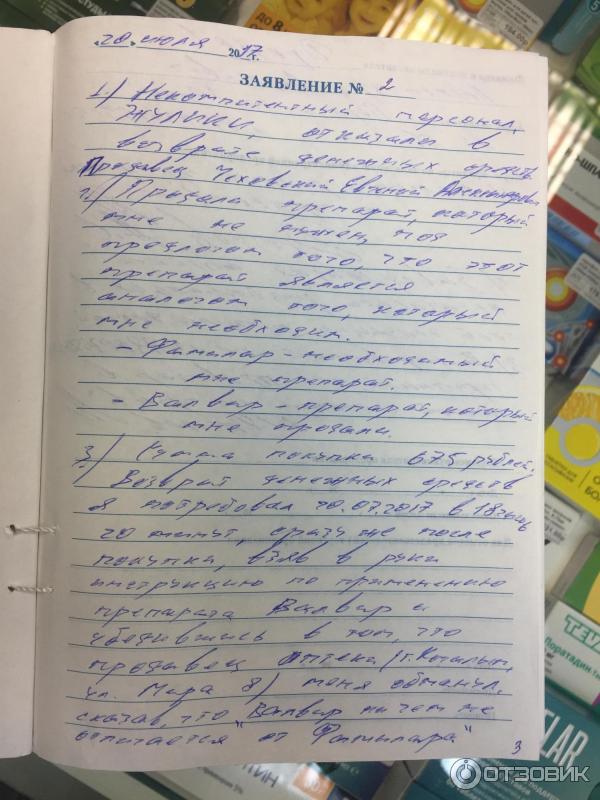 «20» июля 2017 г.
ЗАЯВЛЕНИЕ № 2
1.) Некомпитентный персонал,
ЖУЛИКИ, отказали в
возврате денежных средств
Продавец Чеховский Евгений Александрович
2.) Продали препарат, который
мне не нужен, под
предлогом того, что этот
препарат является
аналогом того, который
мне необходим.
- Фамилар - необходимый
мне препарат.
- Валвир - препарат, который
мне продали.
3.) Сумма покупки 675 рублей.
Возврат денежных средств
я потребовал 20.07.2017 в 18 часов
20 минут, сразу же после
покупки, взяв в руки
инструкцию по применению
препарата Валвир и
убедившись в том, что
продавец Аптеки (г. Когалым,
ул. Мира 8) меня обманул,
сказав, что "Валвир ни чем не
отличается от Фамилара"
3
TEVA
Лоратадин
LAR
ОТЗОВИК